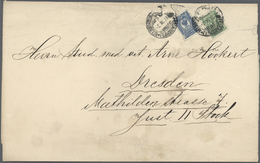 Herrn Stud. med. vet. Arne Höckert
Dresden
Mathilden strasse 7
Just II Stock